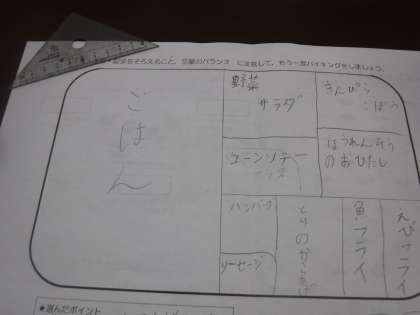 をそろえること、栄養のバランス に注意して、もう一度バイキングをしましょう。
ごはん
野菜
サラダ
きんぴら
ごぼう
コーンソテー
ほうれんそう
のおひたし
ハンバーグ
ソーセージ
とりのからあげ
魚フライ
えびフライ
★選んだポイント